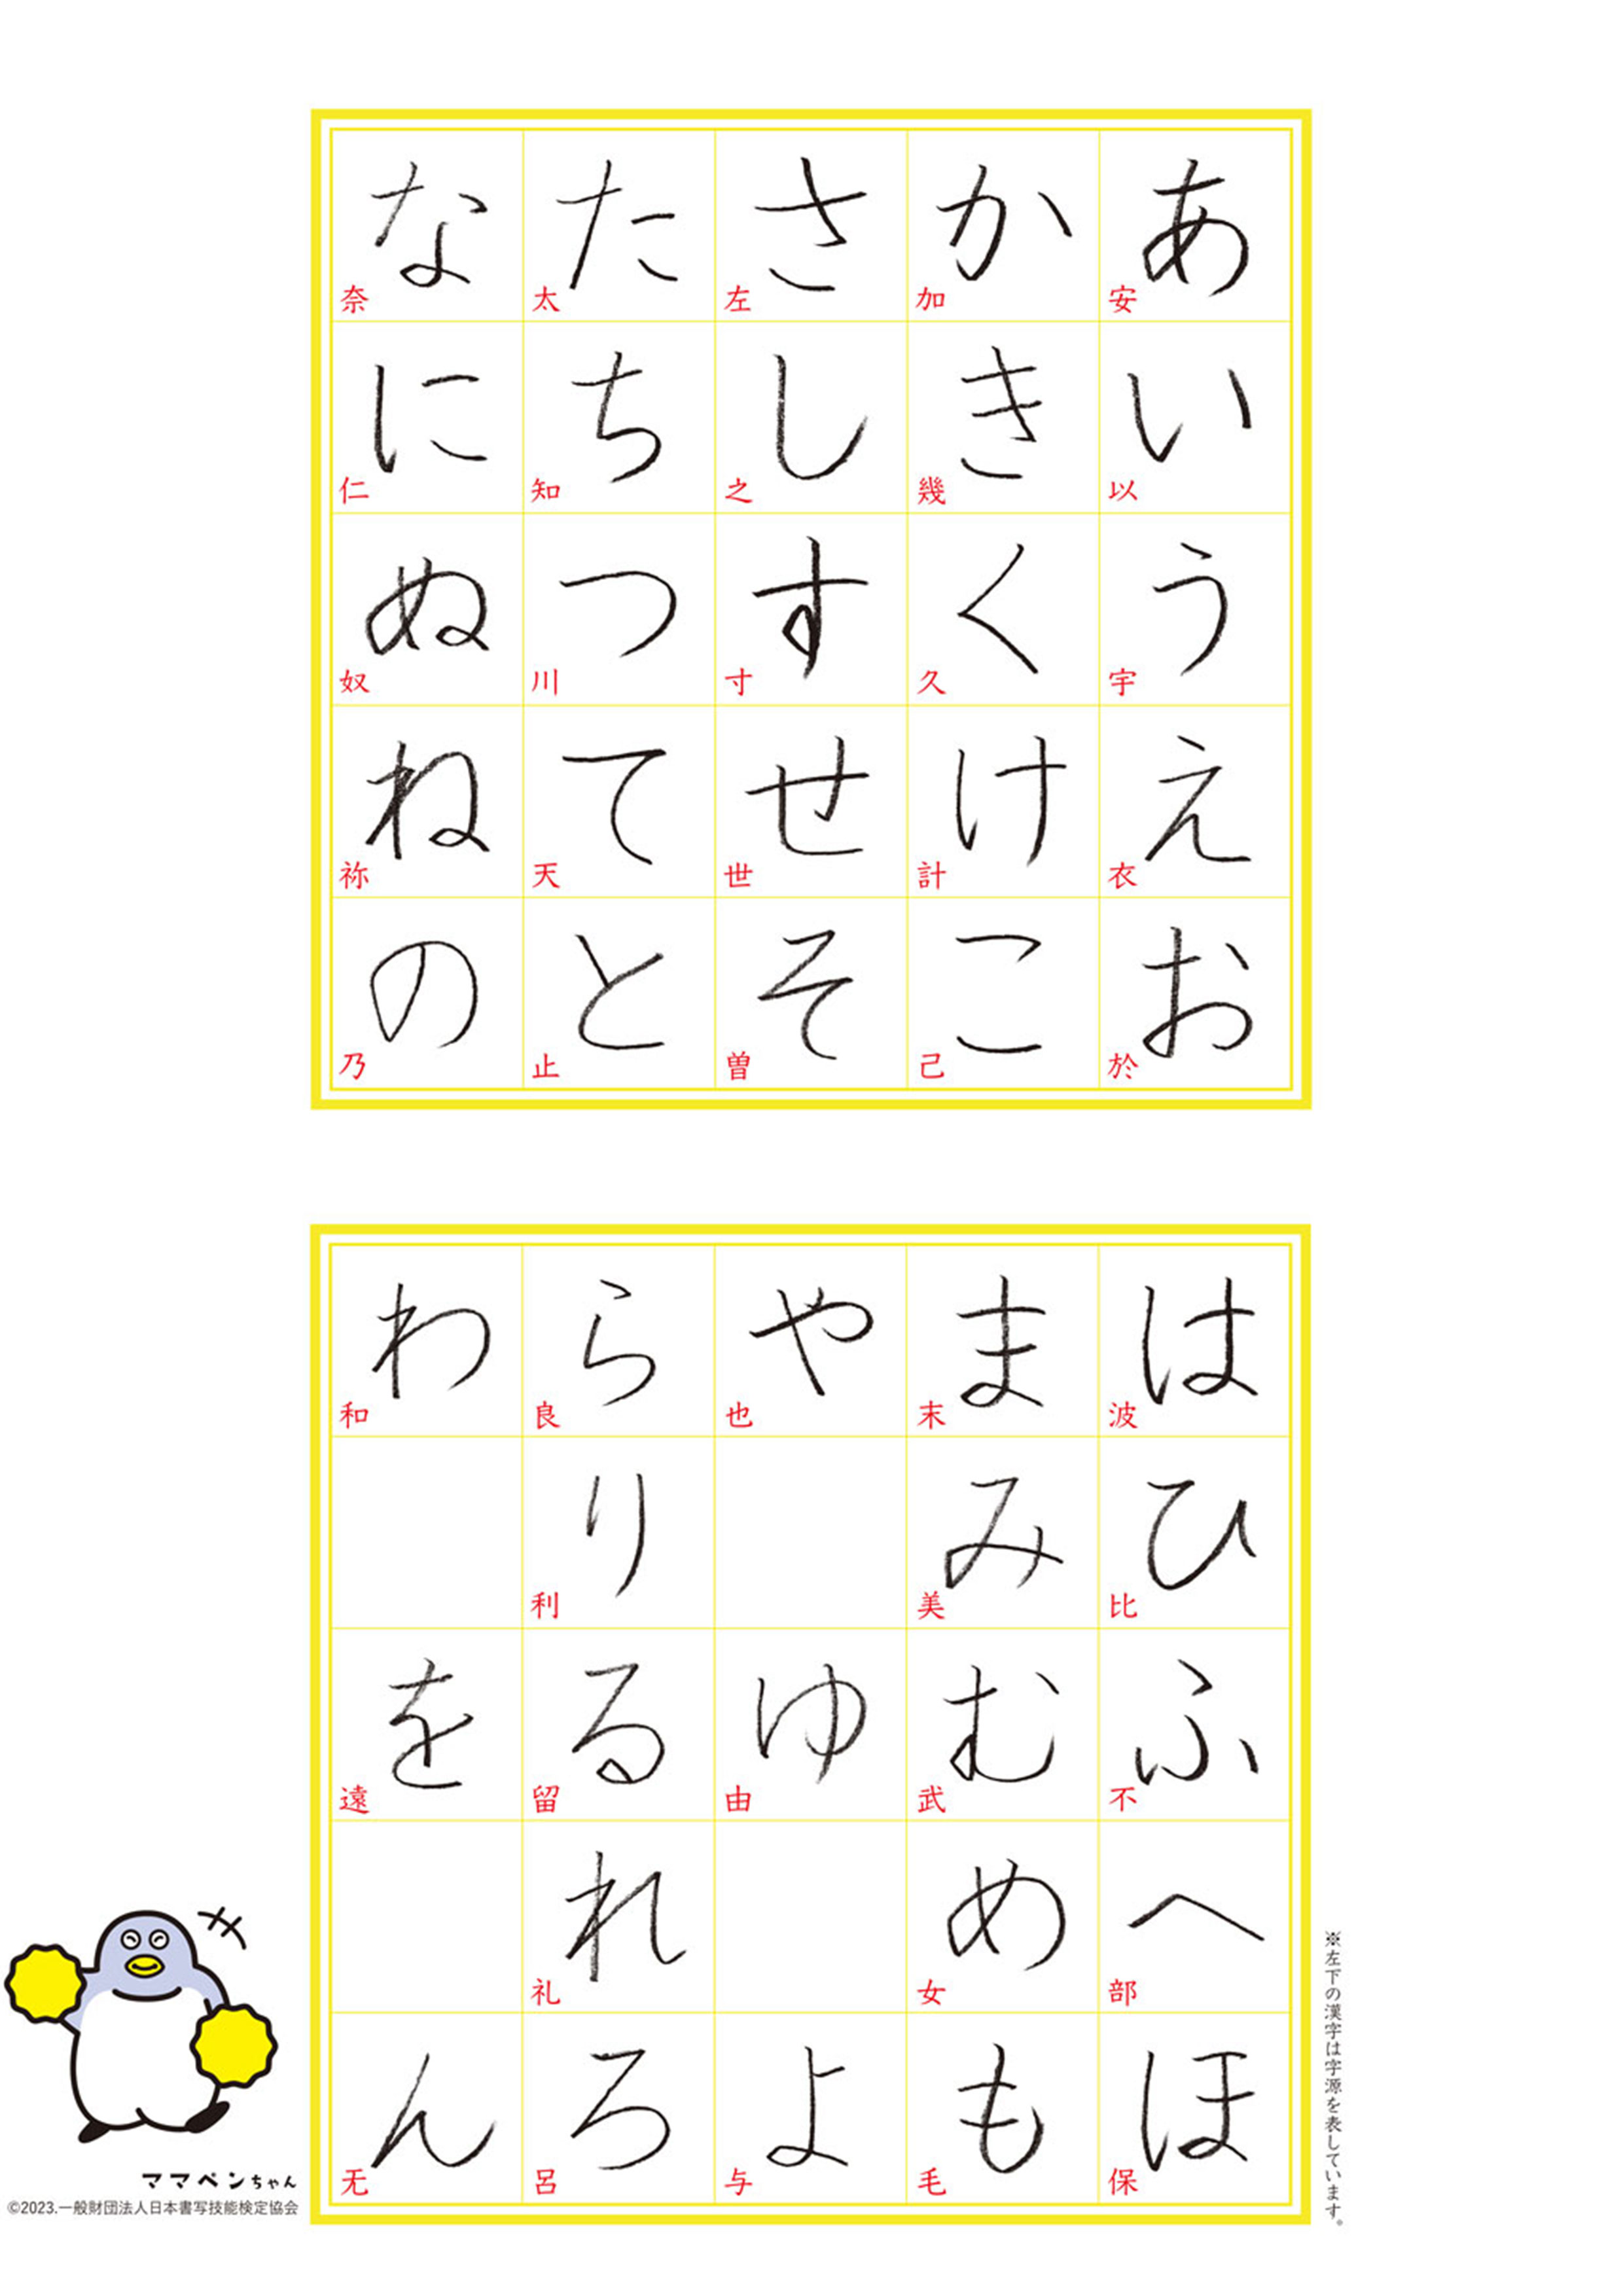 あ か さ た な
安 加 左 太 奈
い き し ち に
以 幾 之 知 仁
う く す つ ぬ
宇 久 寸 川 奴
え け せ て ね
衣 計 世 天 祢
お こ そ と の
於 己 曽 止 乃
は ま や ら わ
波 末 也 良 和
ひ み り
比 美 利
ふ む ゆ る を
不 武 由 留 遠
へ め れ
部 女 礼
ほ も よ ろ ん
保 毛 与 呂 无
※左下の漢字は字源を表しています。
ママペンちゃん
©2023.一般財団法人日本書写技能検定協会